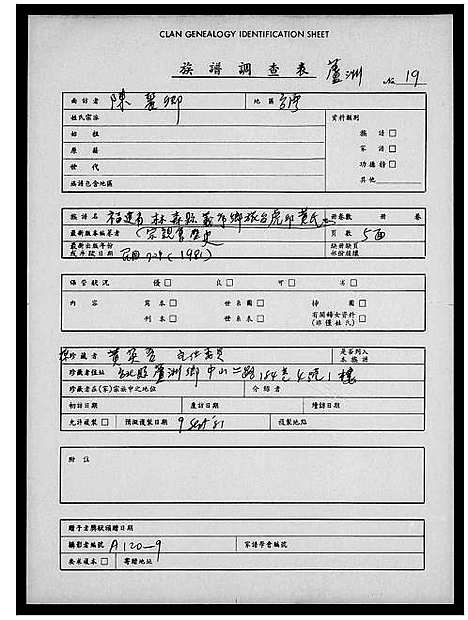 CLAN GENEALOGY IDENTIFICATION SHEET
族譜調查表 蘆洲 No 19
面訪者 陳麗卿 地區 台灣
姓氏宗派 資料類別
始祖 族譜□
原籍 家譜□
世代 功德錄□
族譜包含地區 其他
族譜名 福建省林森縣義序鄉旅台虎邱黃氏 冊卷數 冊 卷
最新版本編著者 (宗親會歷史 頁數 5面
最新出版年份或手錄日期 民國70年(1981) 缺冊缺頁部份種類
保管狀況 優□ 良□ 可□ 劣□
內容 寫本□ 世系圖□ 排圖□
刊本□ 世系表□ 有關婦女資料(非僅姓氏)□
珍藏者 黃 主任委員 是否列入本族譜
珍藏者住址 台北縣蘆洲鄉中山二路184巷4號1樓
珍藏者在(家)宗族中之地位 介紹者
初訪日期 應訪日期 續訪日期
允許複製□ 預擬複製日期 9 Sept '81 複製地點
附註
贈予者獎狀頒贈日期
攝影者編號 A120-9 家譜學會編號
要求複本□ 寄贈地址